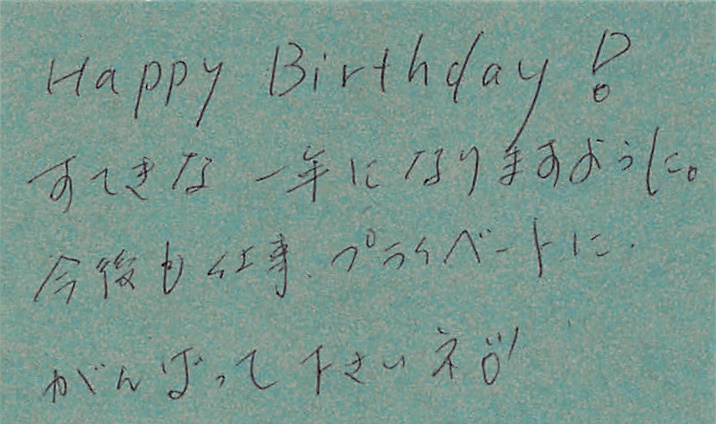 Happy Birthday!
すてきな一年になりますように。
今後も仕事、プライベートに、
がんばって下さいネ!!